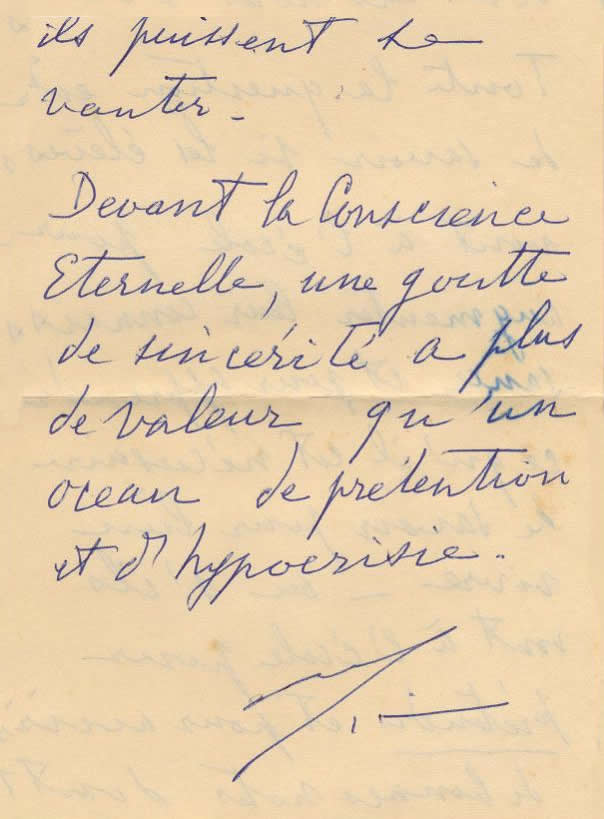 ils puissent se
vanter.
Devant la Conscience
Eternelle, une goutte
de sincérité a plus
de valeur qu'un
ocean de prétention
et d'hypocrisie.